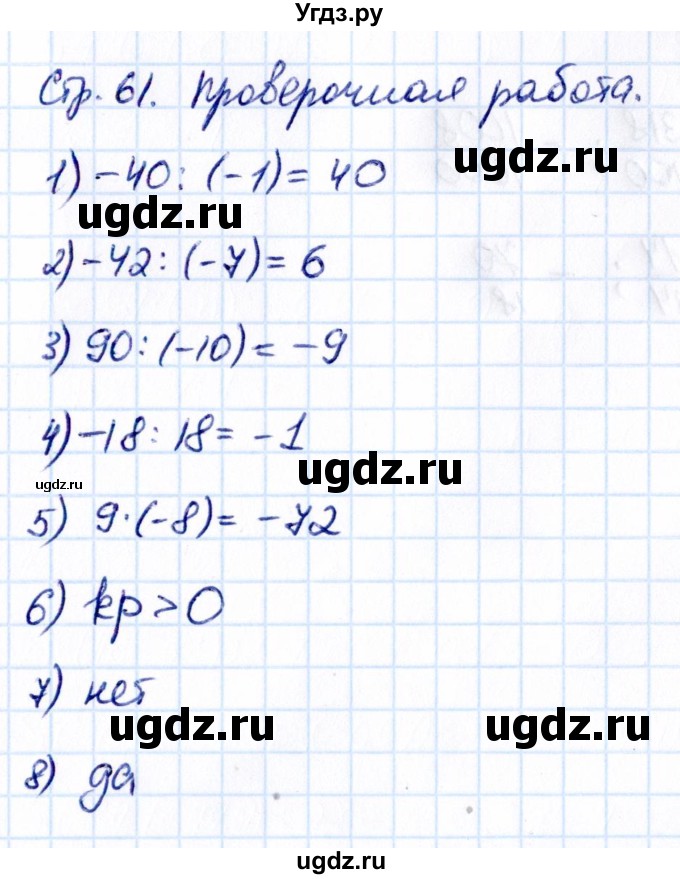 Угдз.ру
Стр. 61. Проверочная работа.
1) -40 : (-1) = 40
ugdz.ru
ugdz.ru
2) -42 : (-7) = 6
3) 90 : (-10) = -9
4) -18 : 18 = -1
ugdz.ru
ugdz.ru
5) 9 · (-8) = -72
6) kp > 0
7) нет
ugdz.ru
ugdz.ru
8) да
ugdz.ru